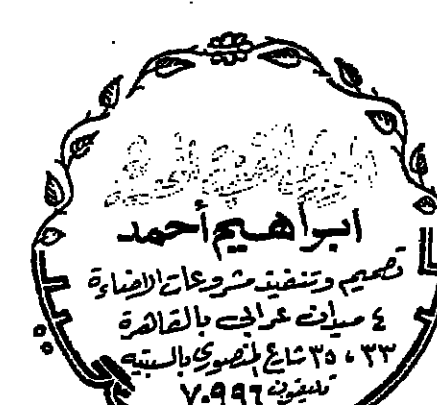 ابراهيم أحمد
تصميم وتنفيذ مشروعات الاضاءة
٤ ميدان عرابى بالقاهرة
٣٣ ، ٣٥ شارع المنصورى بالسبتيه
تليفون ٧٠٩٩٦